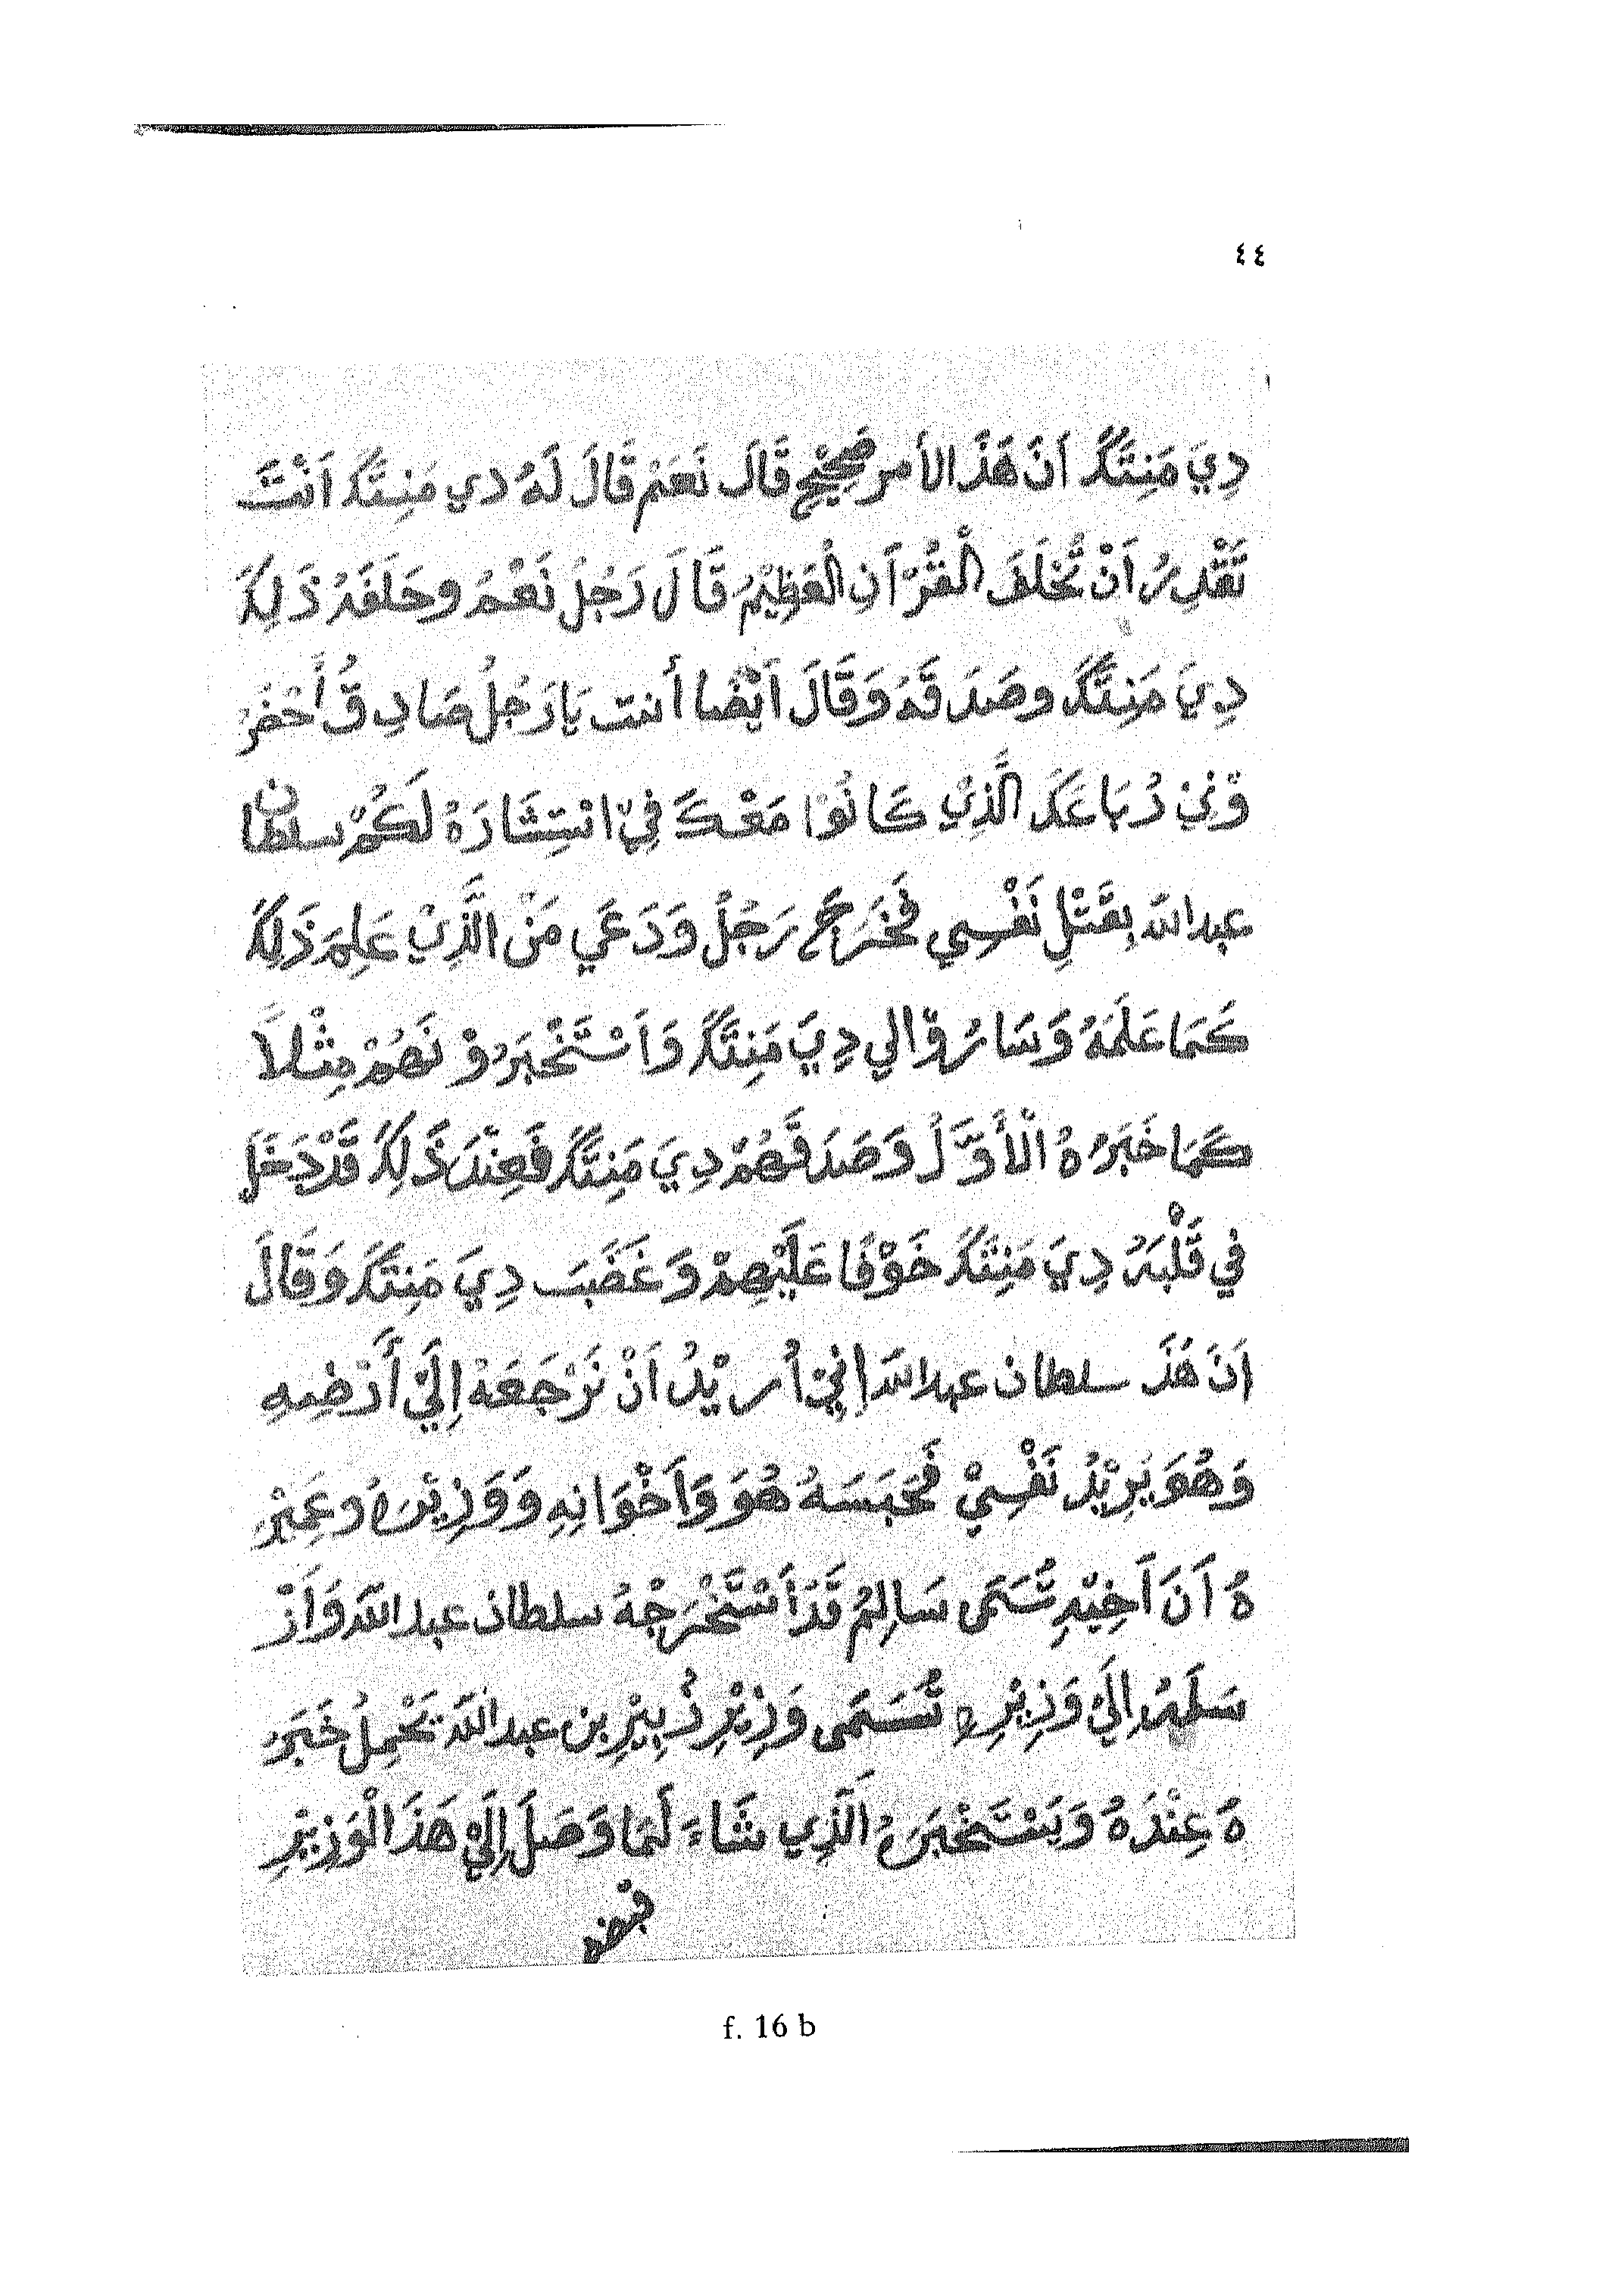 ٤٤
دِيَ مَنِتَكَ اَنَ هَذَ الأمر صَحِيْح قَالَ نَعَمْ قَالَ لَهُ دي مَنِتَكَ اَنْتَ
تَقْدِرُ اَنْ تُحَلَفَ الْقُرْآنِ الْعَظِيْمُ قَالَ رَجُلُ نَعْمُ وحَلَفَهُ ذَلِكَ
دِيَ مَنِتَكَ وصَدَقَهُ وَقَالَ اَيْضًا أنت يَا رَجُلُ صَادِقُ أَحْضَرُ
وْنِيْ رُبَاعَكَ الَّذِيْ كَانُوْا مَعْكَ فِيْ انْتِشَارَهُ لَكُمْ سلطان
عبد الله بِقَتْلِ نَفْسِي فَخَرَجَ رَجُلُ وَدَعَي مَنْ الَّذِيْ عَلِمَ ذَلِكَ
كَمَا عَلَمَهُ وَسَارُوْ الي دِيَ مَنِتَكَ وَاَسْتَخْبَرُوْنَهُمْ مِثْلاً
كَمَا خَبَرُهُ الْأَوَّلُ وَصَدَقَهُمْ دِيَ مَنِتَكَ فَعِنْدَ ذَلِكَ قَدْ دَخَلَ
في قَلْبَهُ دِيَ مَنِتَكَ خَوْفًا عَلَيْهِمْ وَغَضَبَ دِيَ مَنِتَكَ وَقَالَ
اَنَ هَذَ سلطان عبد الله اِنِيْ أُرِيْدُ اَنْ نَرْجَعَهْ اِلَيْ أَرْضِهِ
وَهُوَ يُرِيْدُ نَفْسِيْ فَحَبَسَهُ هُوَ وَاَخْوَانِهِ وَوَزِيْرَهُ وعِمِيْرُ
هُ اَنَ اَخِيْهِ تُسَمَى سَالِمُ قَدْ اَسْتَخْرَجْهُ سلطان عبد الله وَاَرْ
سَلَهُ اِلَيْ وَزِيْرِهِ تُسَمَى وَزِيْرِ زُبِيْرِ بن عبد الله يَحْمِلُ خَبَرُ
هُ عِنْدَهُ وَيَسْتَخْبَرُهُ الَّذِي شَاءَ لَمَا وَصَلَ اِلَيْ هَذَ الْوَزِيْرِ
قبضه
f. 16 b